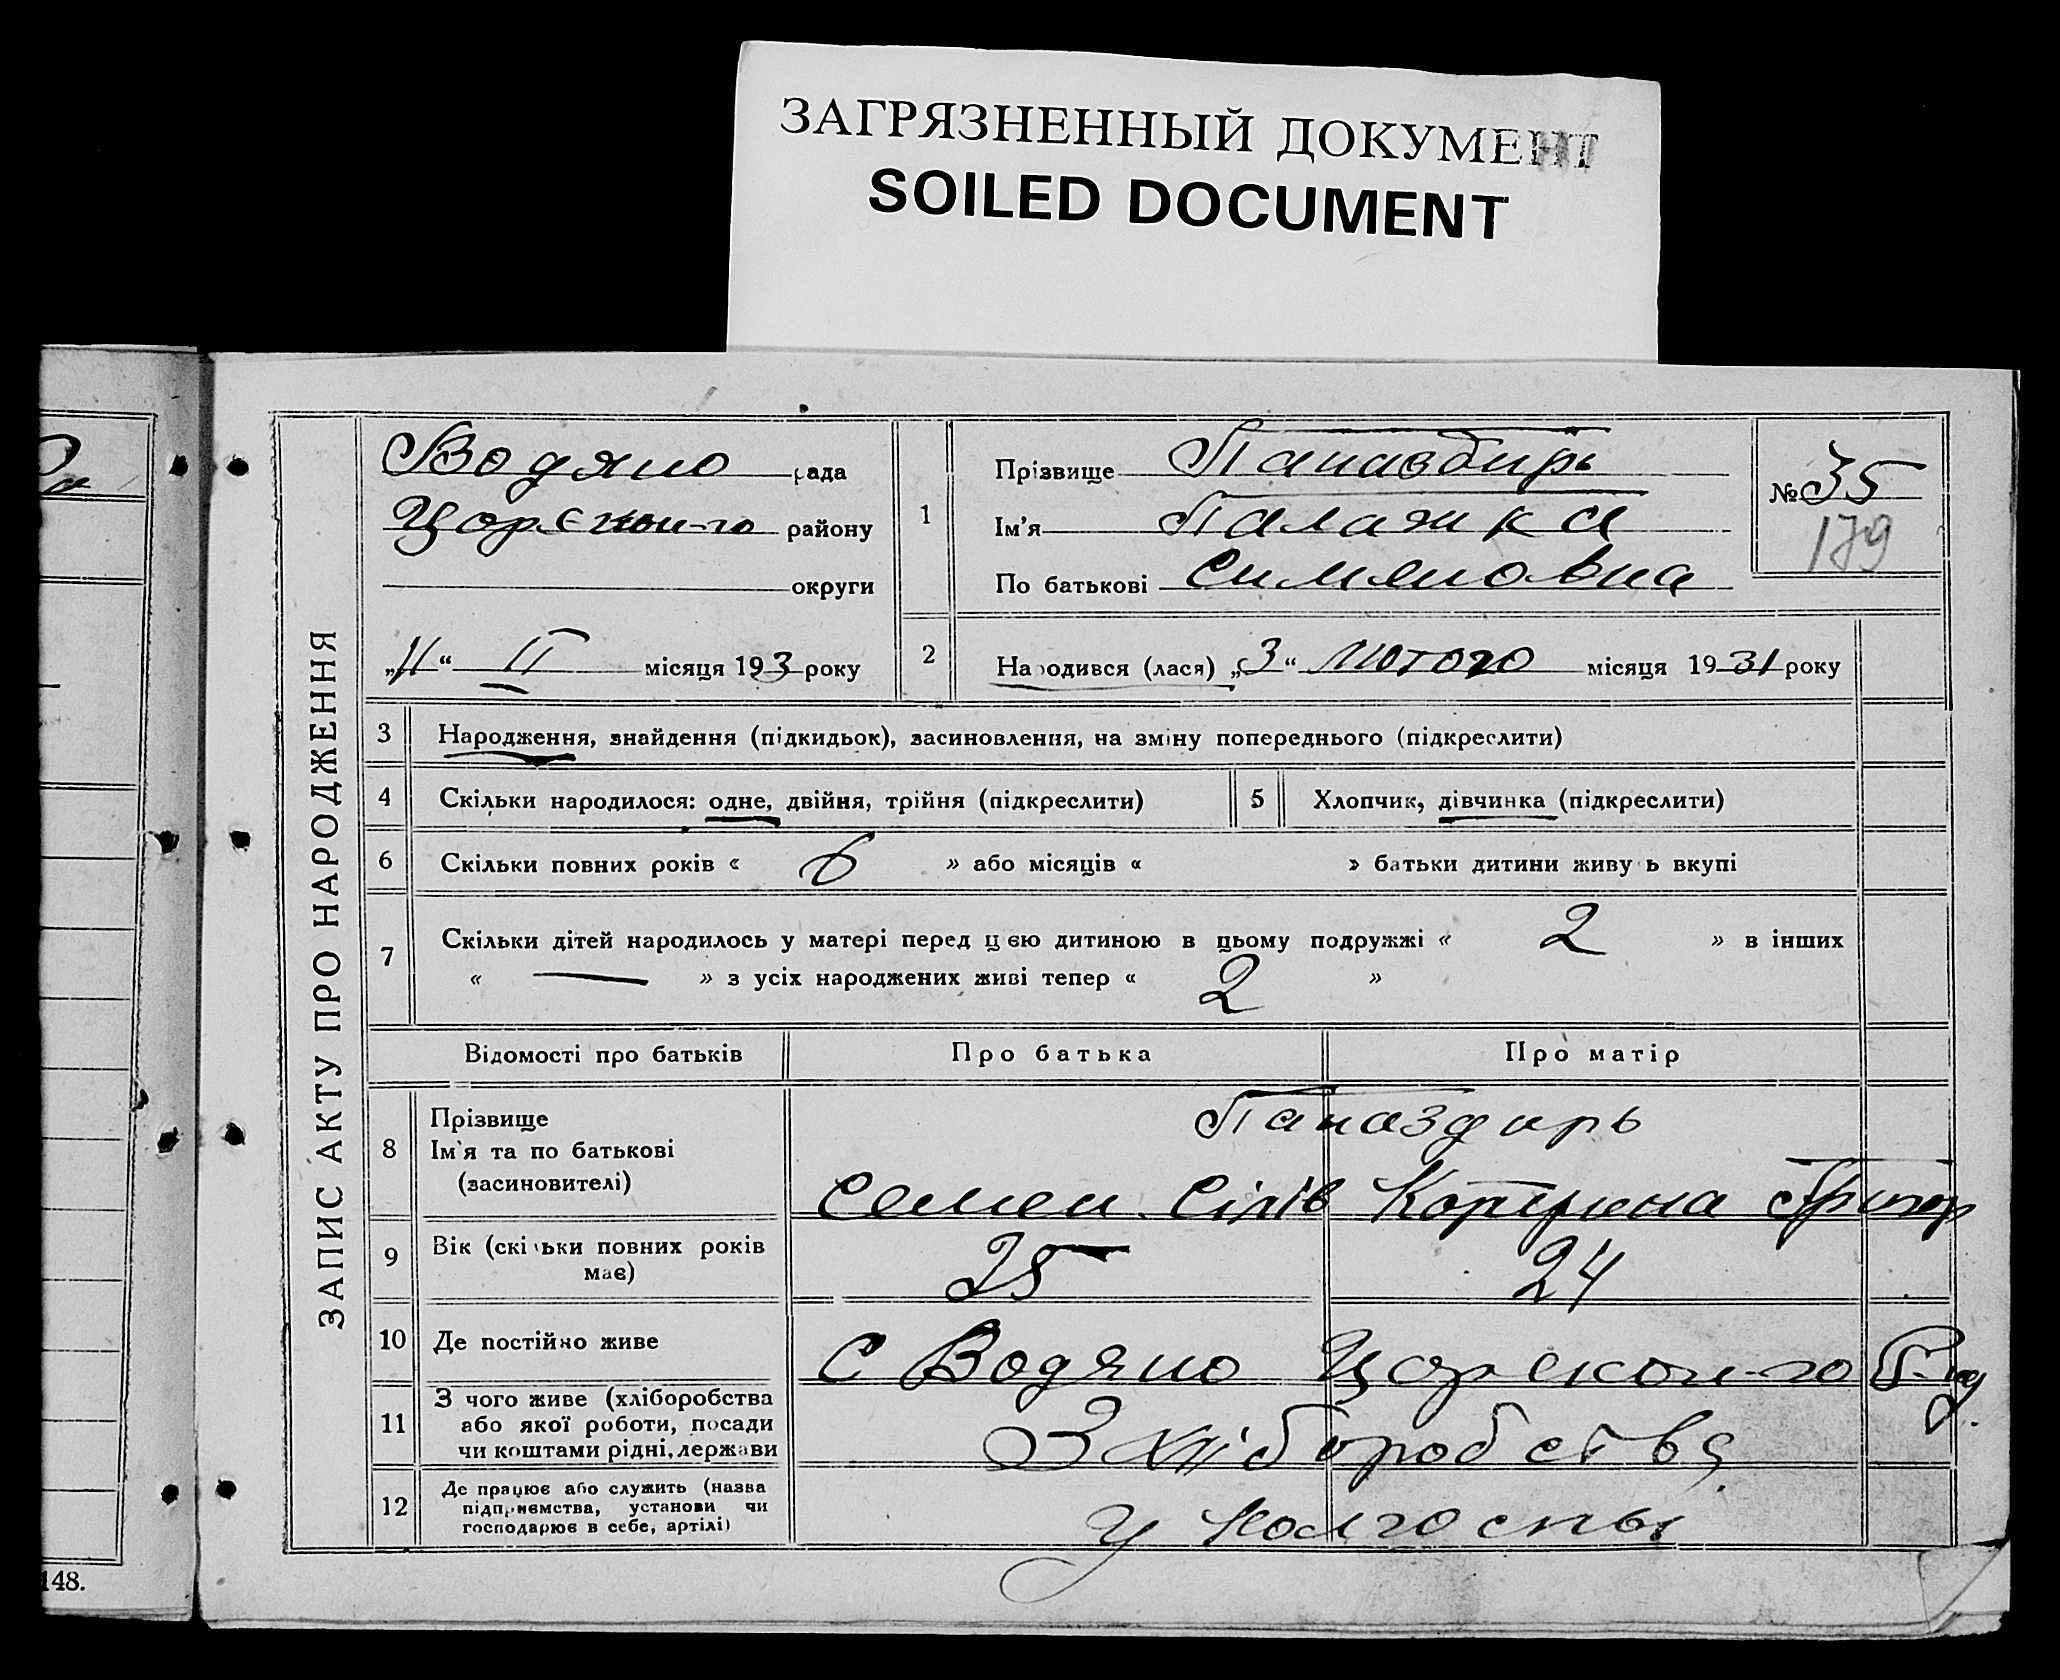 ЗАГРЯЗНЕННЫЙ ДОКУМЕНТ
SOILED DOCUMENT
ЗАПИС АКТУ ПРО НАРОДЖЕННЯ
Водяно рада
район у
округи
„11“ II місяця 193 року
1
Прізвище Панавбирь
Ім'я Палажка
По батькові Симяновна
№ 35
179
2 Народився (лася) „3“ лютого місяця 1931 року
3 Народження, знайдення (підкидьок), засиновлення, на зміну попереднього (підкреслити)
4 Скільки народилося: одне, двійня, трійня (підкреслити)
5 Хлопчик, дівчинка (підкреслити)
6 Скільки повних років « 6 » або місяців « » батьки дитини живуть вкупі
7 Скільки дітей народилось у матері перед цією дитиною в цьому подружжі « 2 » в інших
« — » з усіх народжених живі тепер « 2 »
Відомості про батьків Про батька Про матір
8 Прізвище
Ім'я та по батькові
(засиновителі)
Паназдирь
Семен Сілів Катерина Григор
9 Вік (скільки повних років
має)
25 24
10 Де постійно живе С Водяно
11 З чого живе (хліборобства
або якої роботи, посади
чи коштами рідні, держави
З хліборобства
12 Де працює або служить (назва
підприємства, установи чи
господарює в себе, артілі)
у колгоспы
148.